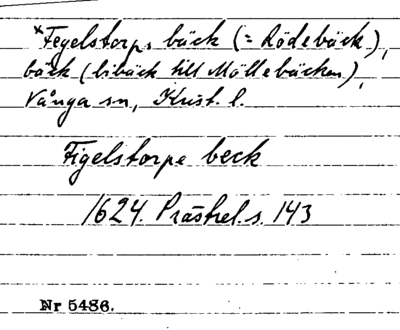 *Fegelstorps bäck (= Rödebäck),
bäck (bibäck till Möllebäcken),
Vånga sn, Krist. l.
Figelstorpe beck
1624. Prästrel. s. 143
Nr 5486.